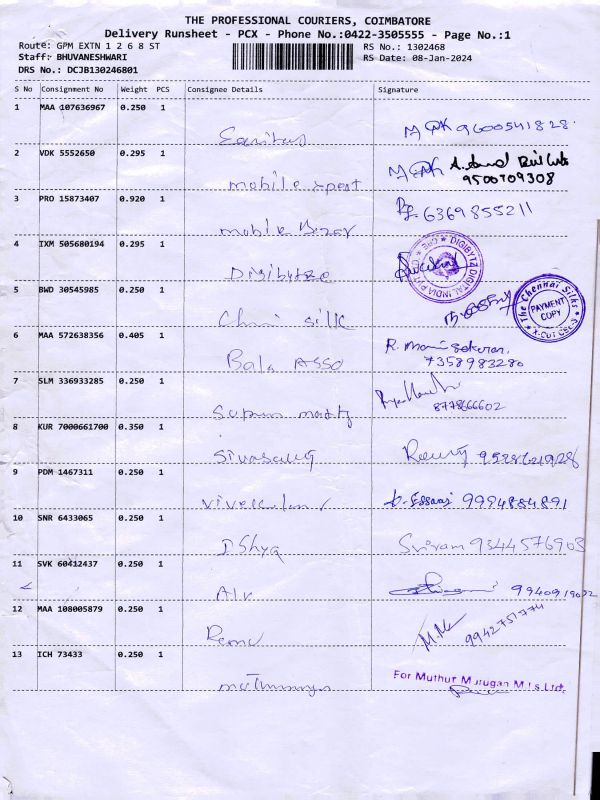 THE PROFESSIONAL COURIERS, COIMBATORE
Delivery Runsheet - PCX - Phone No.:0422-3505555 - Page No.:1
Route: GPM EXTN 1 2 6 8 ST
RS No.: 1302468
Staff: BHUVANESHWARI
RS Date: 08-Jan-2024
DRS No.: DCJB130246801
S No Consignment No Weight PCS Consignee Details Signature
1 MAA 107636967 0.250 1
9600541828
2 VDK 5552650 0.295 1
mobile xpest 9500709308
3 PRO 15873407 0.920 1
6369855211
mobile
4 IXM 505680194 0.295 1
DIGIBYTZ DIGITAL INDIA PVT LTD
Digibytze
5 BWD 30545985 0.250 1
The Chennai Silks
PAYMENT COPY
X-CUT CBE-5
silk
6 MAA 572638356 0.405 1
R. Mani sekaran.
7358983280
Bala ASSO
7 SLM 336933285 0.250 1
8778666602
8 KUR 7000661700 0.350 1
9 PDM 1467311 0.250 1
9994884891
10 SNR 6433065 0.250 1
Sriram 9344576903
Ishya
11 SVK 60412437 0.250 1
12 MAA 108005879 0.250 1
9942751774
13 ICH 73433 0.250 1
For Muthur Murugan Mills Ltd.